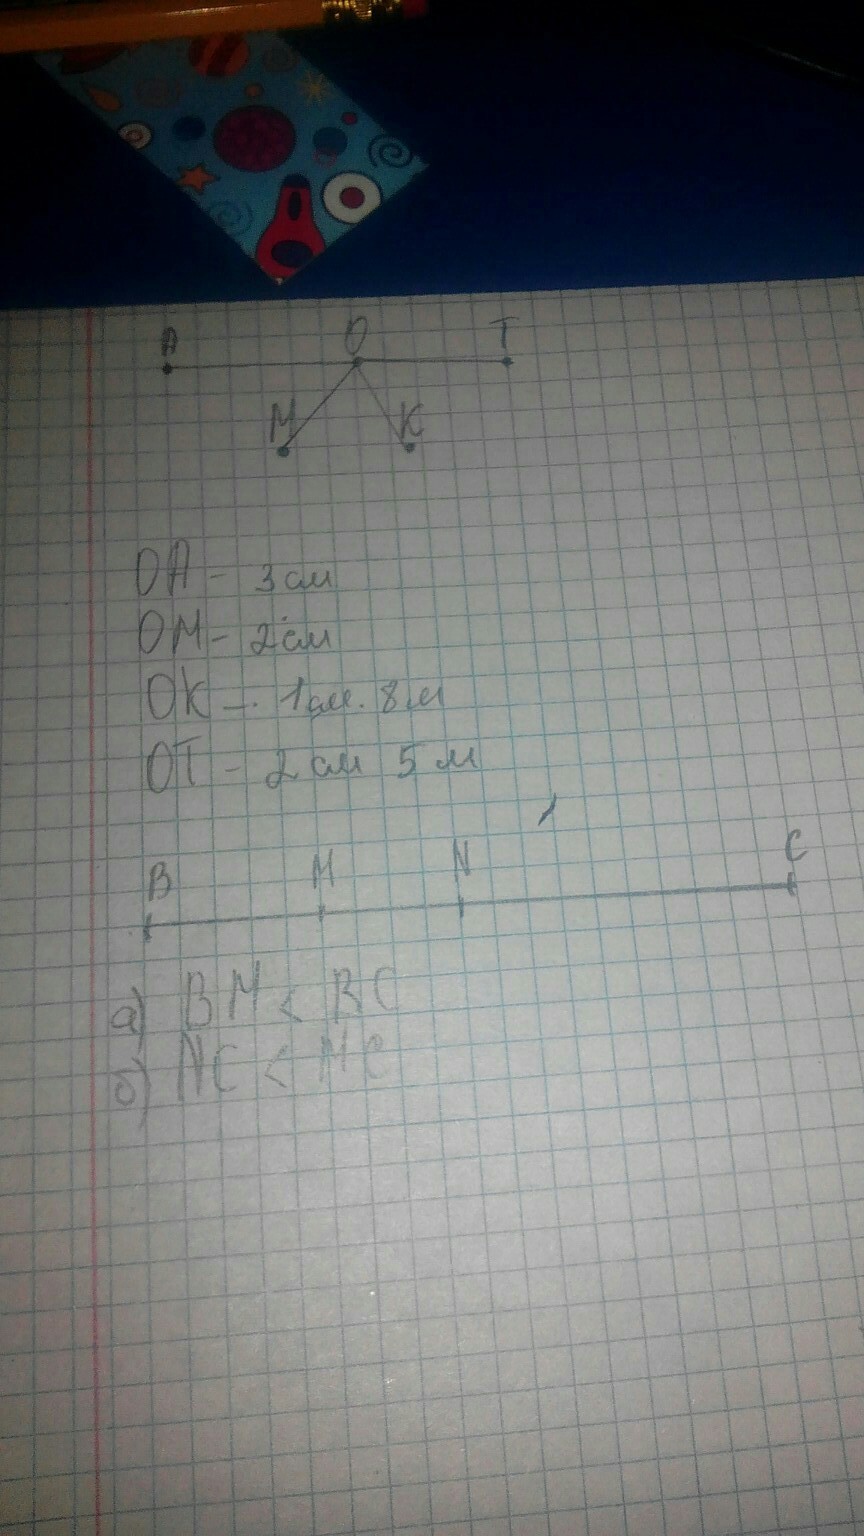 A O T
M K
OA - 3 см
OM - 2 см
OK - 1 см. 8 м
OT - 2 см 5 м
B M N C
а) BM < BC
б) NC < MC